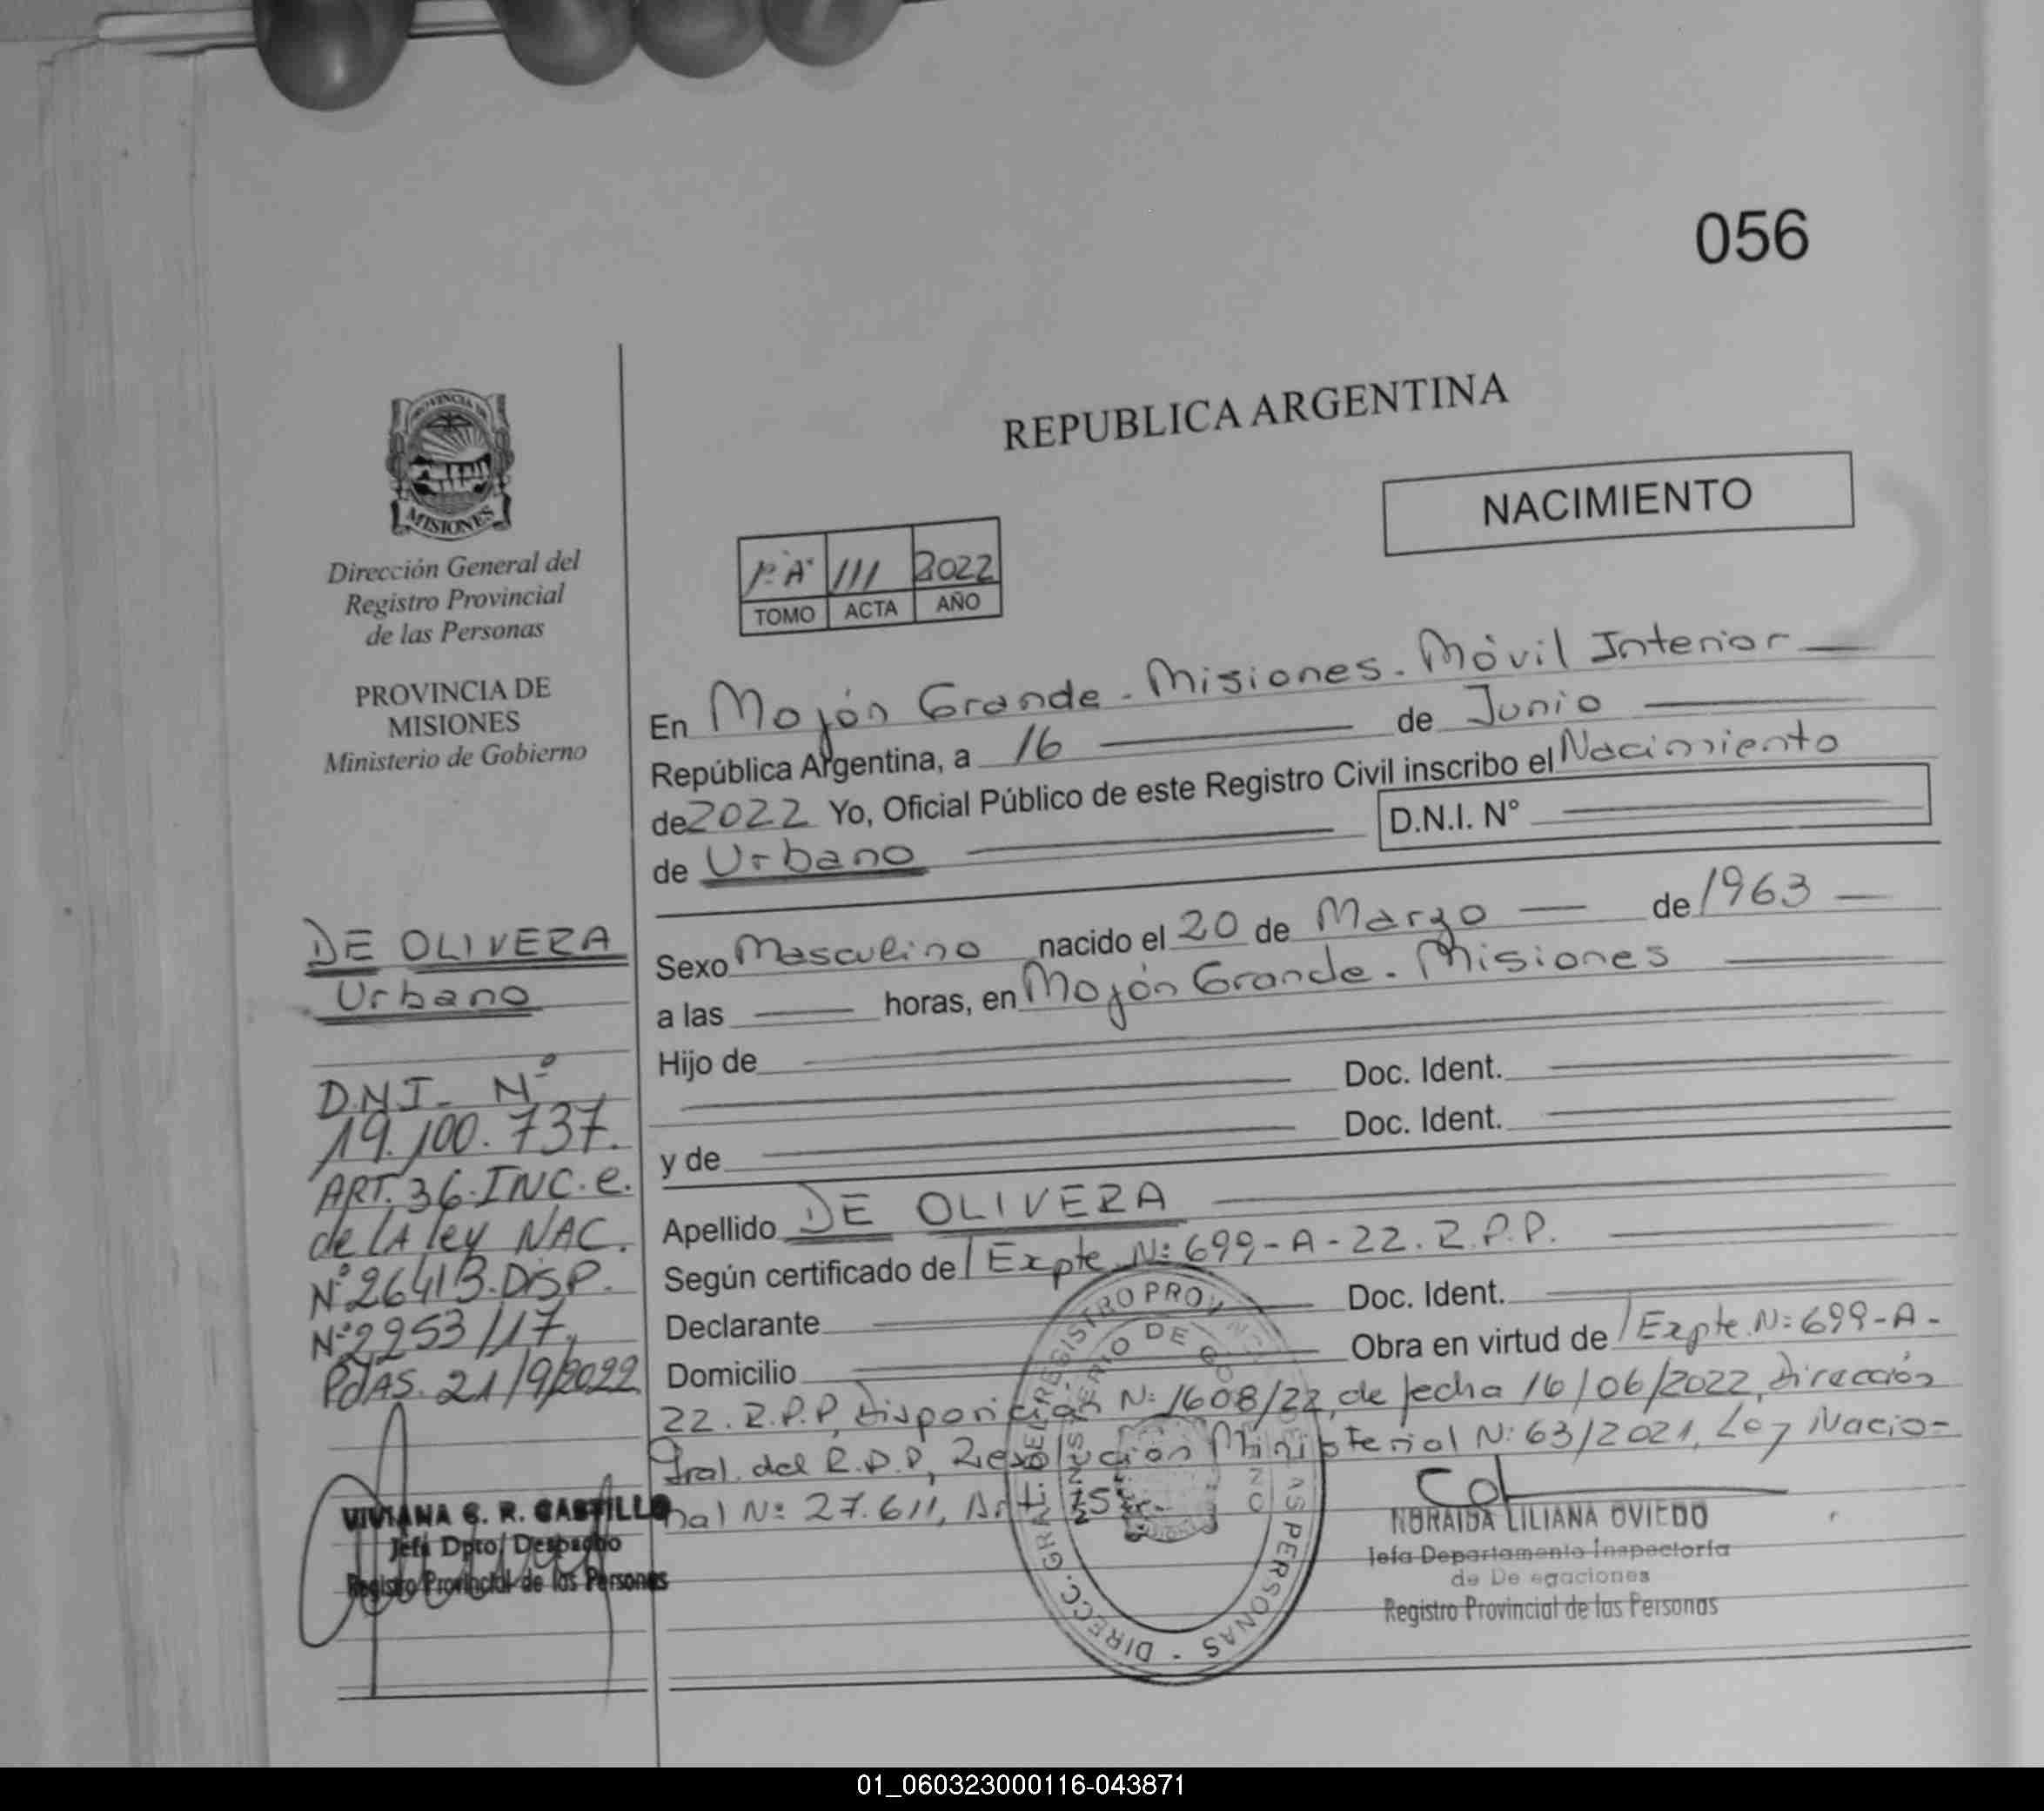 056
PROVINCIA DE
MISIONES
Dirección General del
Registro Provincial
de las Personas
PROVINCIA DE
MISIONES
Ministerio de Gobierno
DE OLIVERA
Urbano
D.N.I. Nº
19.100.737.
ART. 36. INC. e.
de LA ley NAC.
Nº 26413. DISP.
Nº 2253/17,
PdAS. 21/9/2022
VIVIANA G. R. CASTILLO
Jefa Dpto. Despacho
Registro Provincial de las Personas
REPUBLICA ARGENTINA
NACIMIENTO
1º "A" 111 2022
TOMO ACTA AÑO
En Mojón Grande - Misiones - Móvil Interior
República Argentina, a 16 de Junio
de 2022 Yo, Oficial Público de este Registro Civil inscribo el Nacimiento
de Urbano D.N.I. N°
Sexo Masculino nacido el 20 de Marzo de 1963
a las horas, en Mojón Grande - Misiones
Hijo de
Doc. Ident.
y de Doc. Ident.
Apellido DE OLIVERA
Según certificado de Expte Nº 699-A-22. R.P.P.
Declarante Doc. Ident.
Domicilio Obra en virtud de Expte. Nº 699-A-
22. R.P.P, Disposición Nº 1608/22, de fecha 16/06/2022, Dirección
Gral. del R.P.P, Resolución Ministerial Nº 63/2021, Ley Nacio-
nal Nº 27.611, Art.
DIRECC. GRAL. DEL REGISTRO PROV. DE LAS PERSONAS -
MINISTERIO DE GOBIERNO
NORAIDA LILIANA OVIEDO
Jefa Departamento Inspectoría
de De egaciones
Registro Provincial de las Personas
01_060323000116-043871